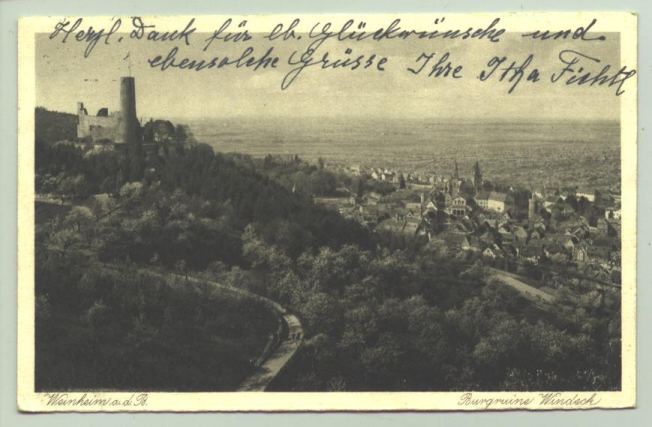 Herzl. Dank für lb. Glückwünsche und
ebensolche Grüsse Ihre Itha Fichtl
Weinheim a. d. B.
Burgruine Windeck